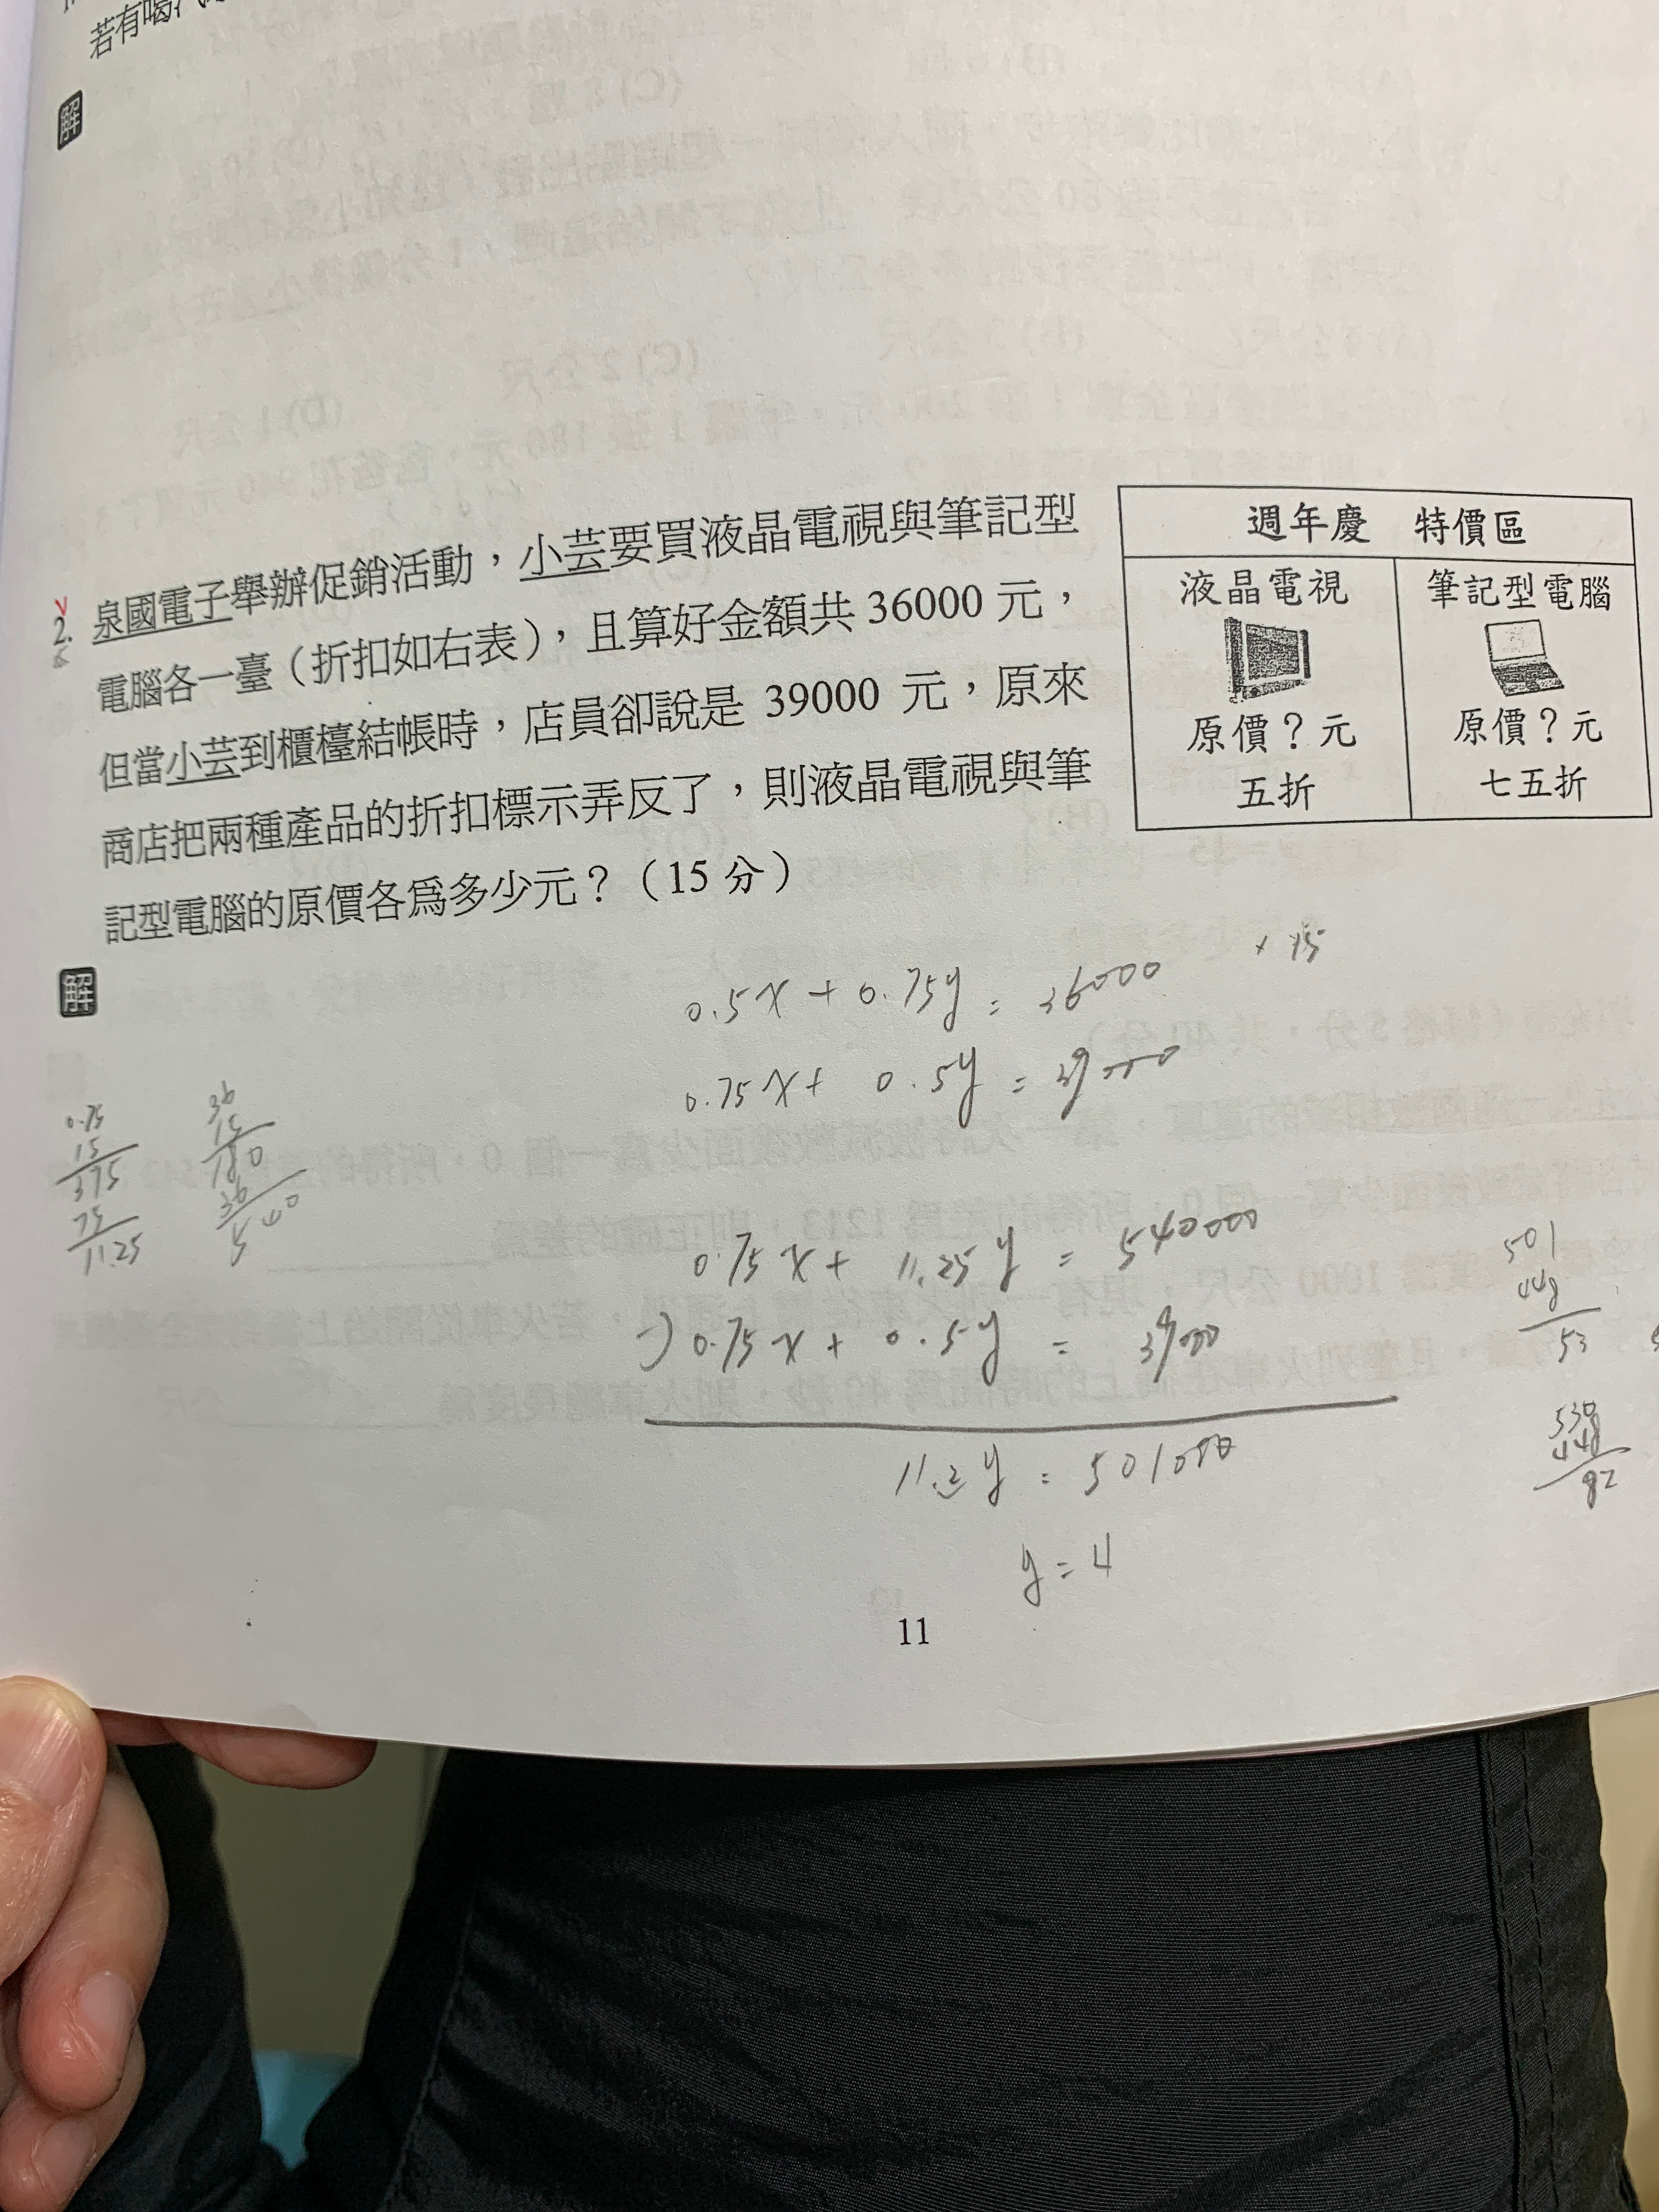 若有喝汽
解
2. 泉國電子舉辦促銷活動，小芸要買液晶電視與筆記型
電腦各一臺（折扣如右表），且算好金額共 36000 元，
但當小芸到櫃檯結帳時，店員卻說是 39000 元，原來
商店把兩種產品的折扣標示弄反了，則液晶電視與筆
記型電腦的原價各為多少元？（15 分）
週年慶 特價區
液晶電視
原價？元
五折
筆記型電腦
原價？元
七五折
解
0.5x + 0.75y = 36000 × 15
0.75x + 0.5y = 39000
0.75
15
375
75
11.25
36
15
180
36
540
0.75x + 11.25y = 540000
-) 0.75x + 0.5y = 39000
11.2y = 501000
y = 4
501
448
53
530
448
82
11